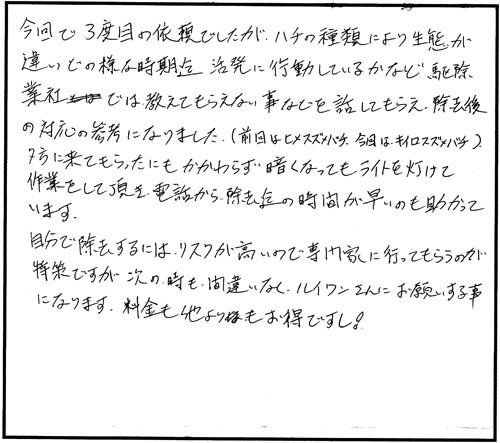 今回で3度目の依頼でしたが、ハチの種類により生態が
違いどの様な時期迄 活発に行動しているかなど駆除
業社では教えてもらえない事などを話してもらえ、除去後
の対応の参考になりました。(前回はヒメスズメバチ、今回はキイロスズメバチ)、
夕方に来てもらったにもかかわらず暗くなってもライトを灯けて
作業をして頂き、電話から除去迄の時間が早いのも助かって
います。
自分で除去するには、リスクが高いので専門家に行ってもらうのが
得策ですが 次の時も、間違いなく、ルイワンさんにお願いする事
になります。料金も他よりもお得ですし!